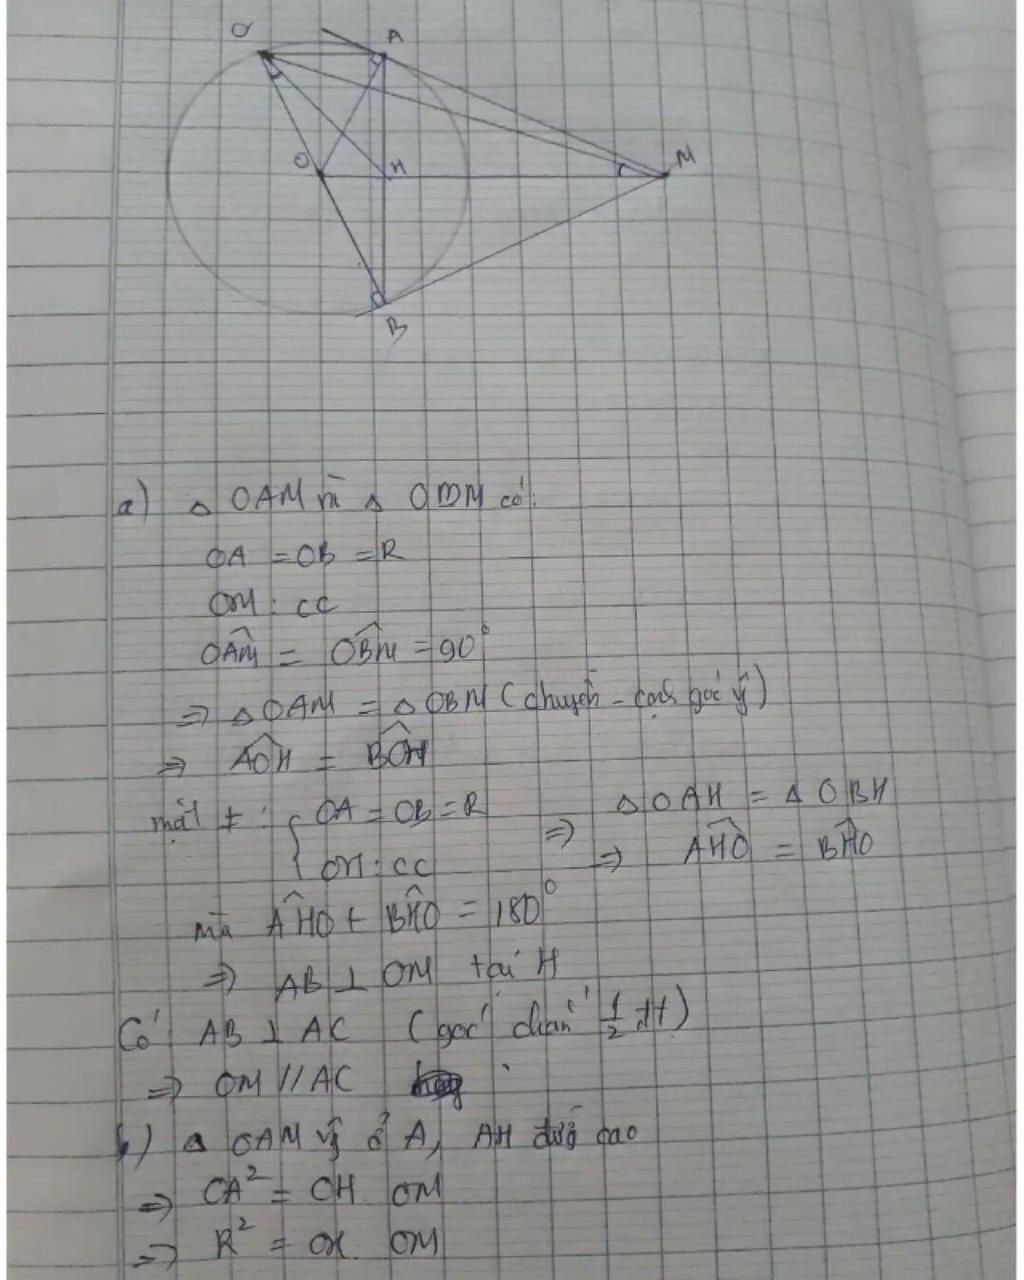 C A
O H M
B
a) △ OAM và △ OBM có:
OA = OB = R
OM : cc
OÂM = OB̂M = 90°
=> △ OAM = △ OBM (chuyền - cạnh góc v)
=> AÔH = BÔH
mặt ≠ : { OA = OB = R => △ OAH = △ OBH
OM : cc => AĤO = BĤO
mà AĤO + BĤO = 180°
=> AB ⊥ OM tại H
Có AB ⊥ AC (góc chắn 1/2 đt)
=> OM // AC
b) △ OAM vg ở A, AH đường cao
=> OA² = OH . OM
=> R² = OH . OM